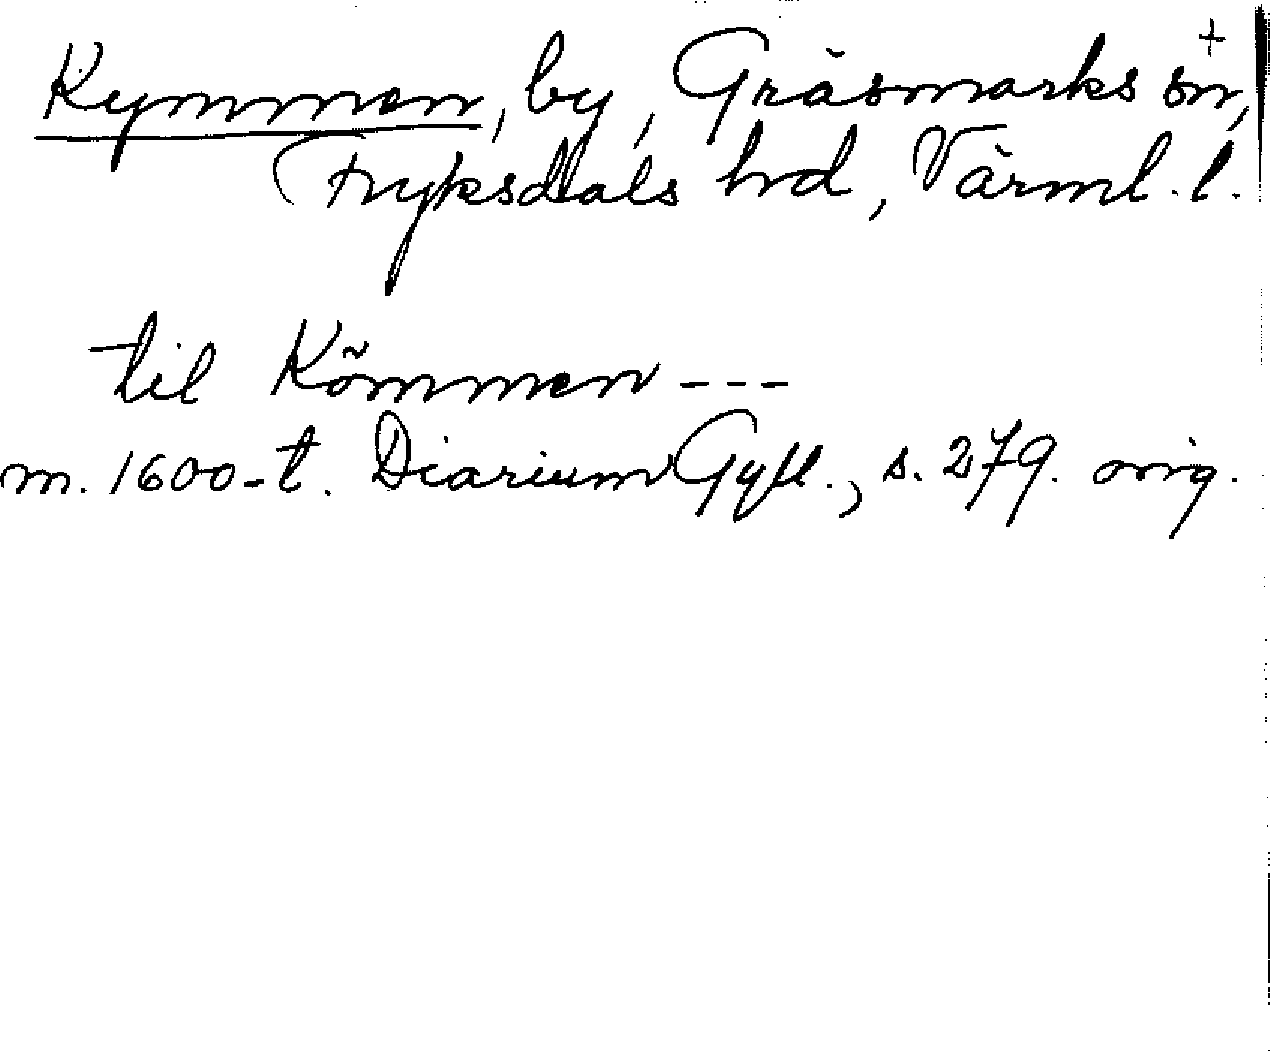 Kymmen, by, Gräsmarks sn, +
Fryksdals hrd, Värml. l.
til Kõmmen ---
m. 1600-t. Diarium Gyll., s. 279. orig.